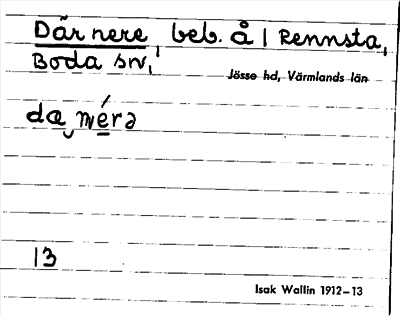 Där nere, beb. å | Rennsta,
Boda sn,
Jösse hd, Värmlands län
13
Isak Wallin 1912–13